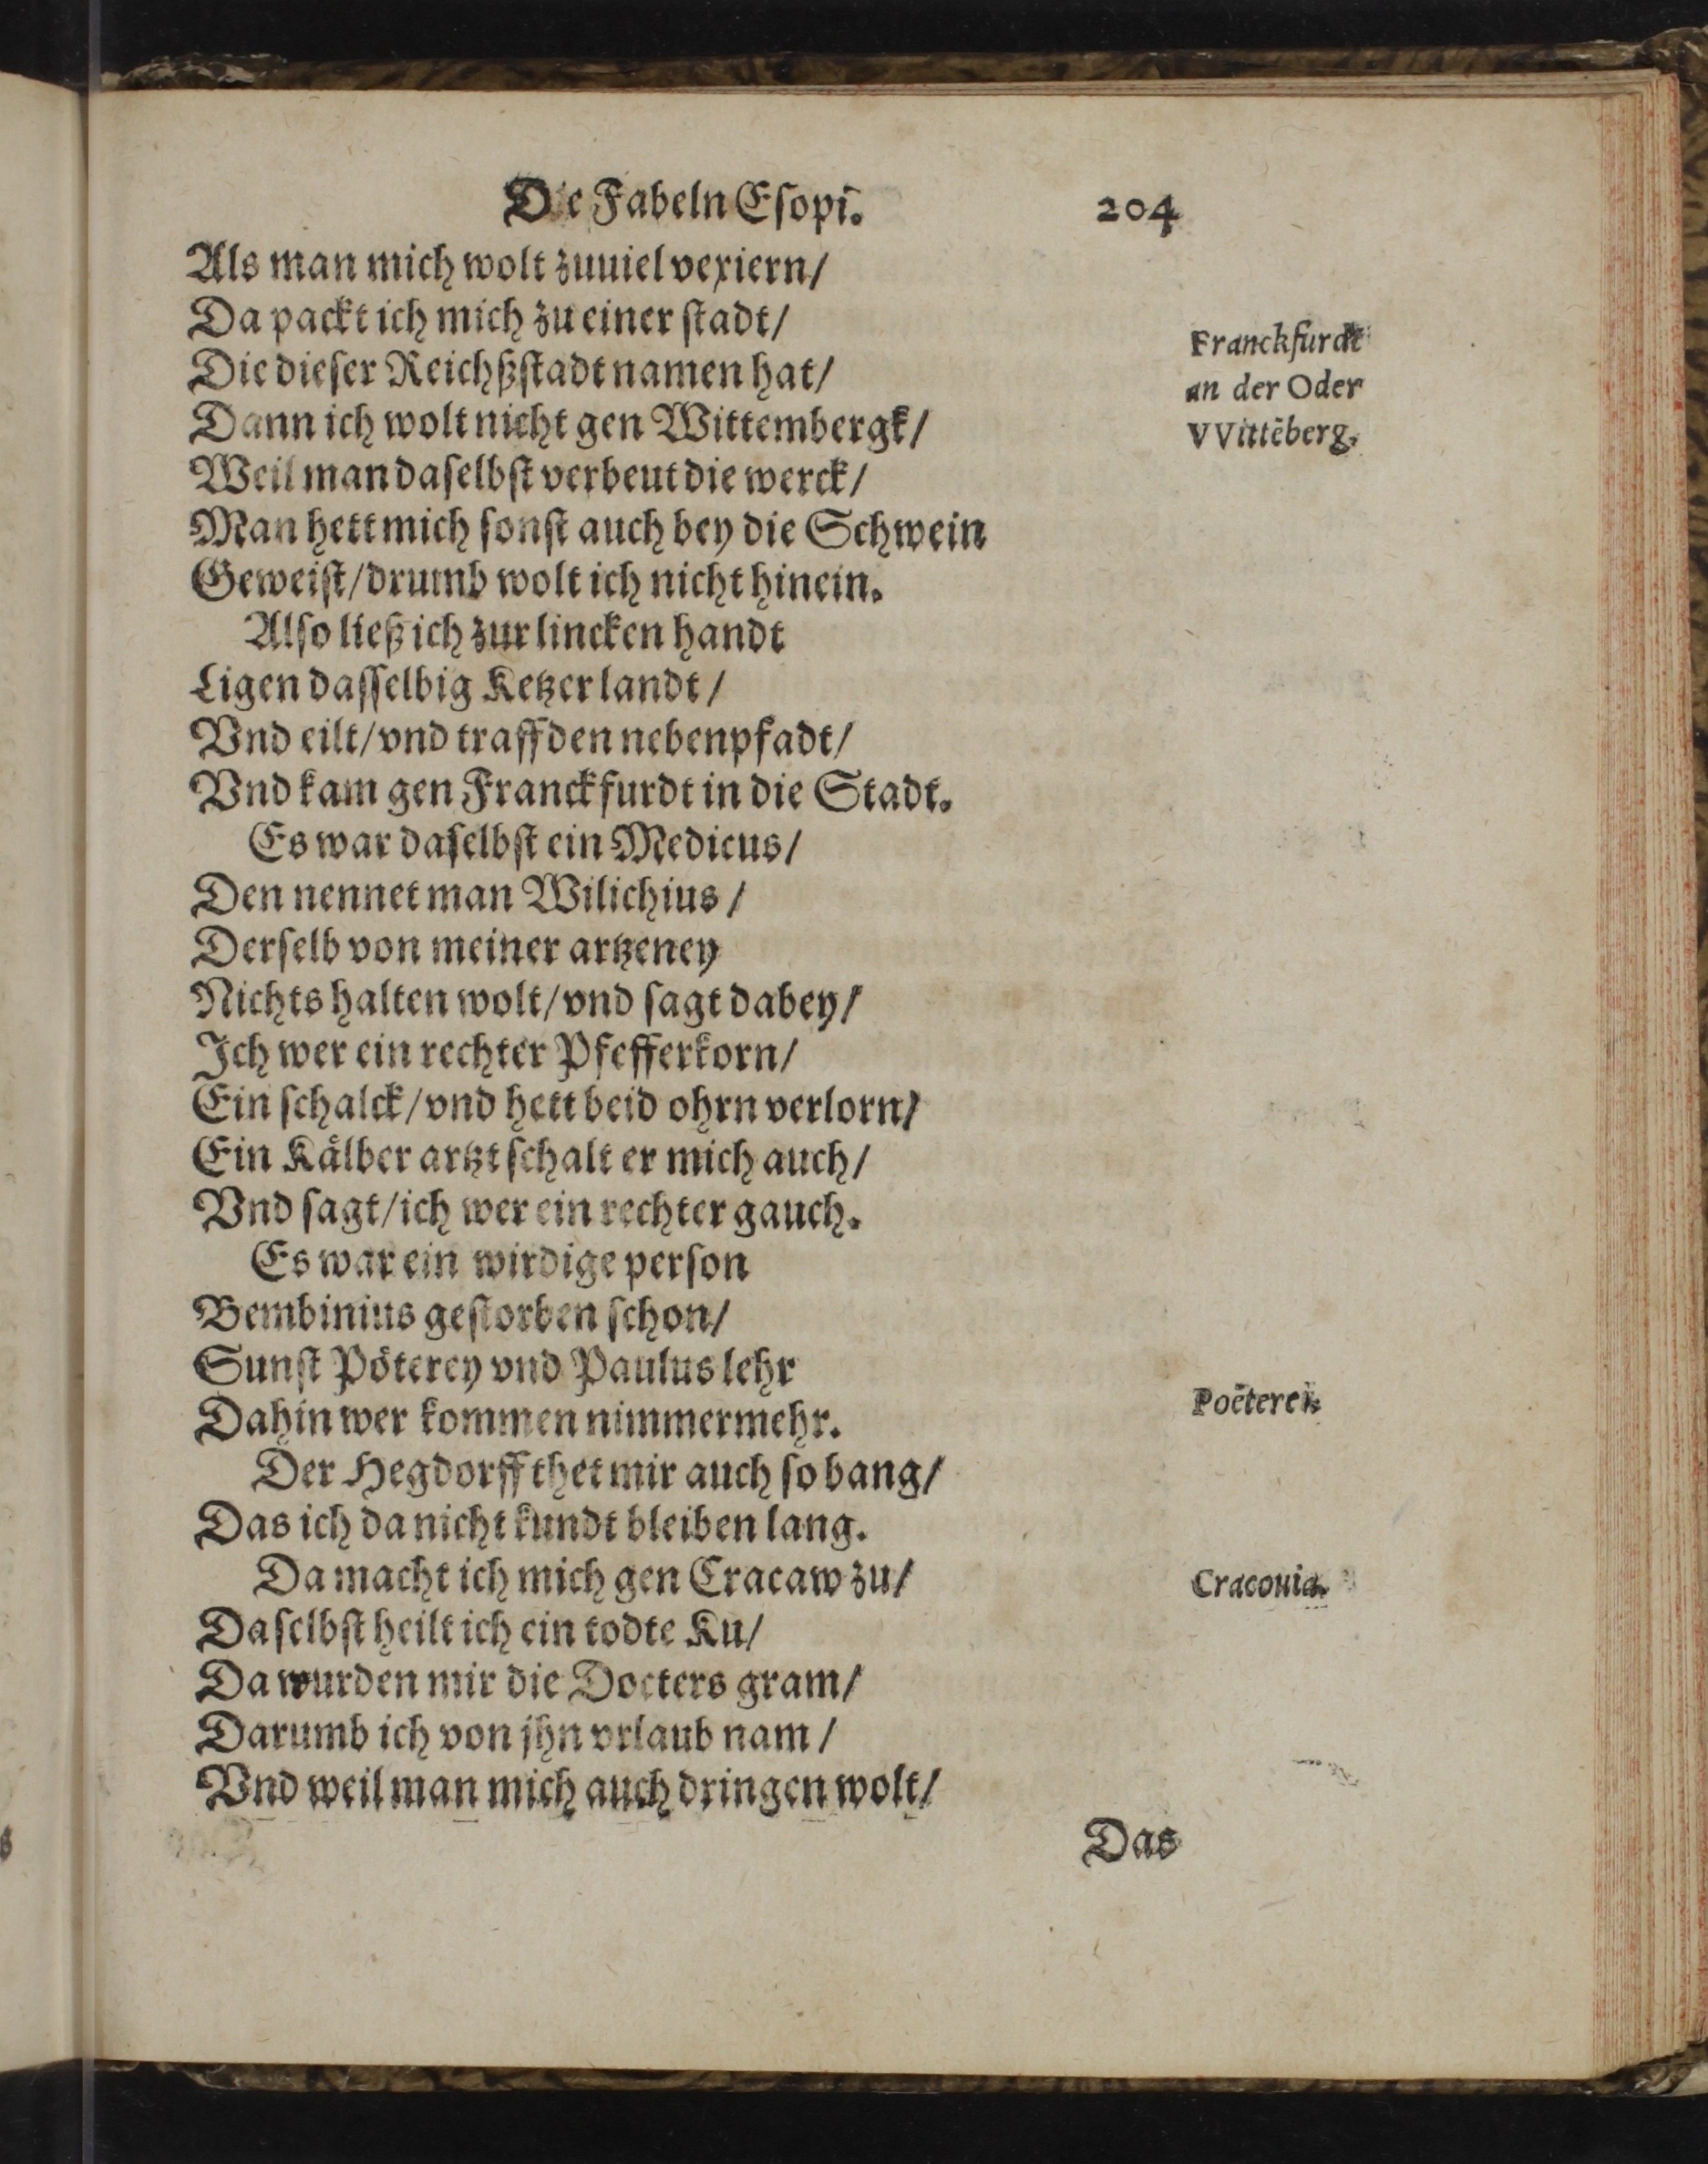 Die Fabeln Eſopi. 204
Als man mich wolt zuuiel vexiern/
Da packt ich mich zu einer ſtadt/
Die dieſer Reichßſtadt namen hat/
Dann ich wolt nicht gen Wittembergk/
Weil man daſelbſt verbeut die werck/
Man hett mich ſonſt auch bey die Schwein
Geweiſt/drumb wolt ich nicht hinein.
Alſo ließ ich zur lincken handt
Ligen daſſelbig Ketzer landt/
Vnd eilt/vnd traff den nebenpfadt/
Vnd kam gen Franckfurdt in die Stadt.
Es war daſelbſt ein Medicus/
Den nennet man Wilichius/
Derſelb von meiner artzeney
Nichts halten wolt/vnd ſagt dabey/
Ich wer ein rechter Pfefferkorn/
Ein ſchalck/vnd hett beid ohrn verlorn/
Ein Kaͤlber artzt ſchalt er mich auch/
Vnd ſagt/ich wer ein rechter gauch.
Es war ein wirdige perſon
Bembinius geſtorben ſchon/
Sunſt Poͤterey vnd Paulus lehr
Dahin wer kommen nimmermehr.
Der Hegdorff thet mir auch ſo bang/
Das ich da nicht kundt bleiben lang.
Da macht ich mich gen Cracaw zu/
Daſelbſt heilt ich ein todte Ku/
Da wurden mir die Docters gram/
Darumb ich von jhn vrlaub nam/
Vnd weil man mich auch dringen wolt/
Das
Franckfurdt
an der Oder
VVittēberg.
Poëterei.
Craconia.